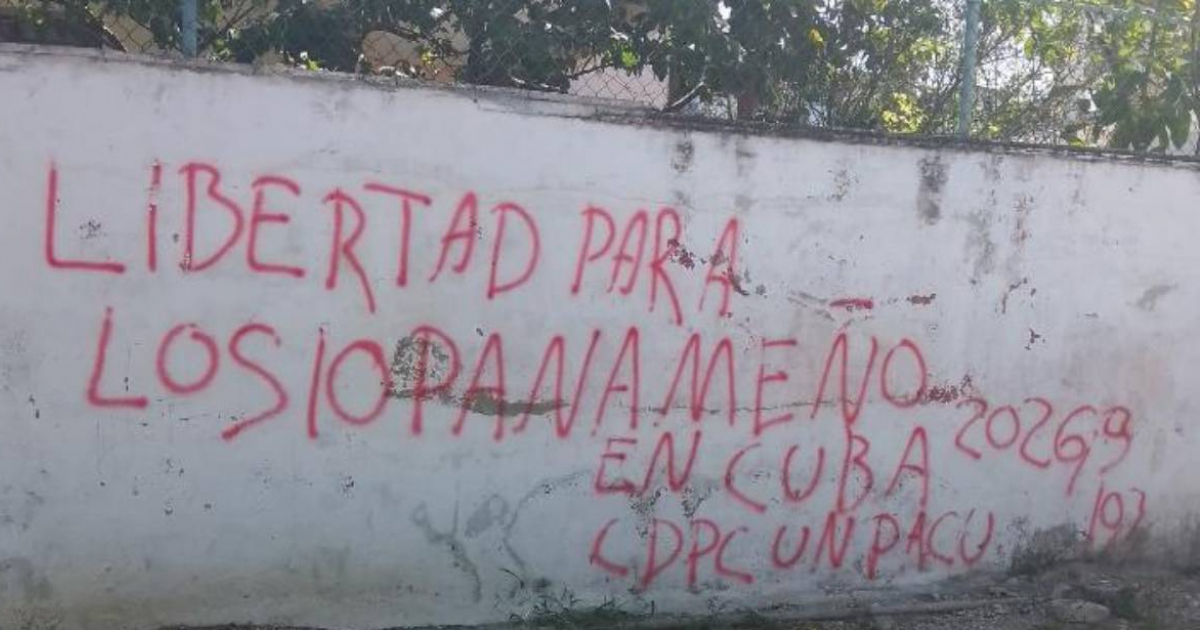 LIBERTAD PARA
LOS 10 PANAMEÑO
EN CUBA 2026 9
CDPC UNPACU 103